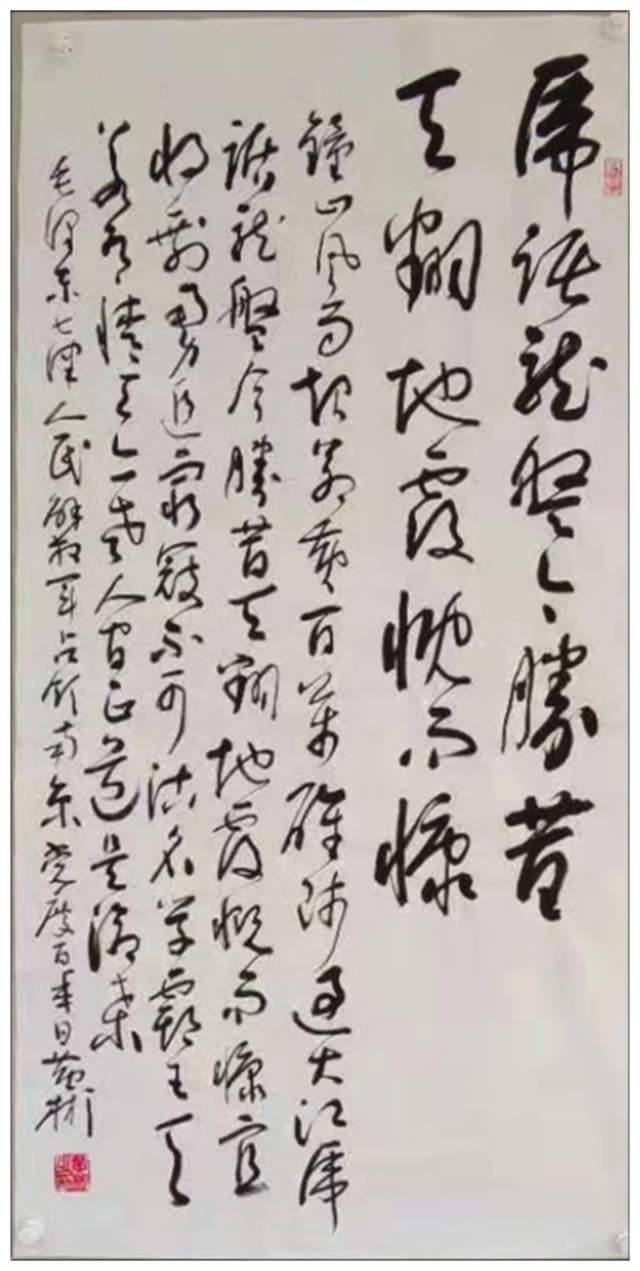 虎踞龙盘今勝昔
天翻地覆慨而慷
鐘山风雨起苍黄百万雄师过大江虎
踞龙盘今勝昔天翻地覆慨而慷宜
将剩勇追穷寇不可沽名学霸王天
若有情天亦老人间正道是沧桑
毛泽东七律人民解放军占领南京党庆百年日彬